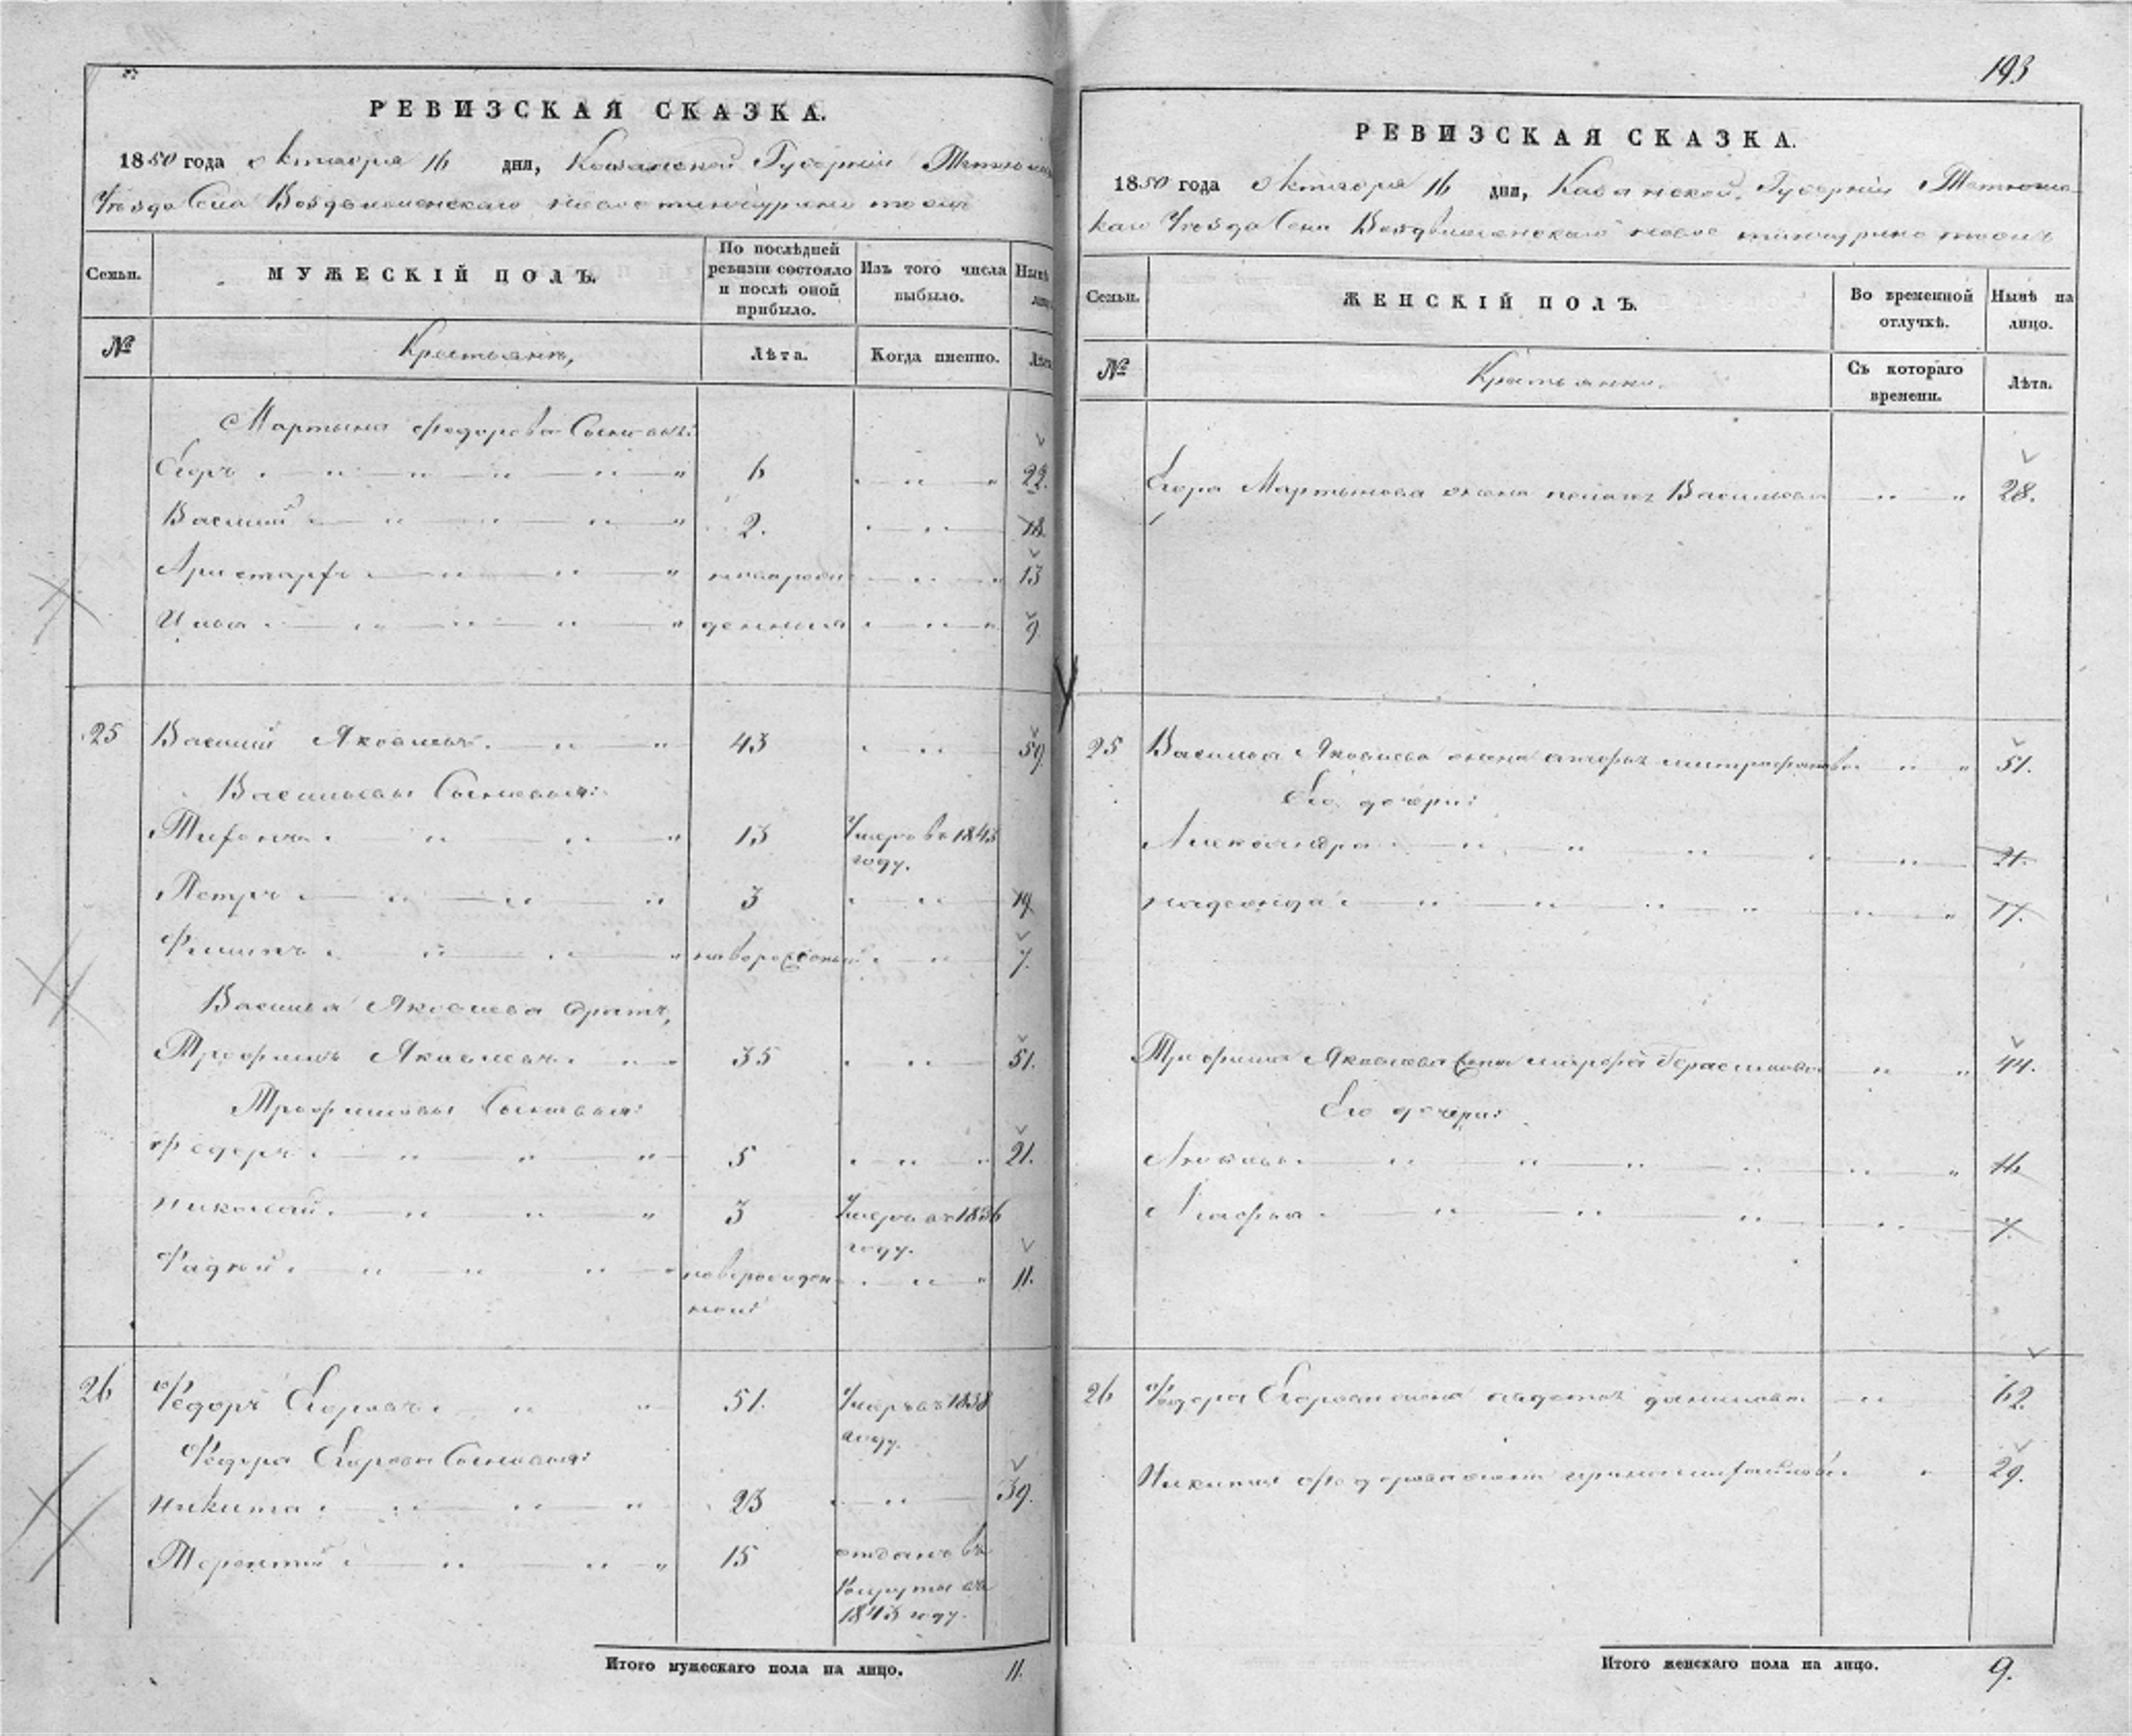 РЕВИЗСКАЯ СКАЗКА.
1850 года Октября 16 дня, Казанской Губернии
Уезда Села Воздвиженскаго
Семьи. МУЖЕСКІЙ ПОЛЪ. По послѣдней ревизіи состояло и послѣ оной прибыло. Изъ того числа выбыло. Нынѣ
№ Крестьяне, Лѣта. Когда именно. Лѣта
Мартына Федорова Сыновья:
Егоръ 6 22.
Василий 2. 18.
Аристархъ новорож 13
Илья денныя 9
25 Василий Яковлевъ 43 59
Васильевы Сыновья:
Тихонъ 13 Умеръ въ 1843
году.
Петръ 3 19
Филипъ новорожденый 7.
Василья Яковлева братъ,
Трофимъ Яковлевъ 35 51.
Трофимовы Сыновья:
Федоръ 5 21.
Николай 3 Умеръ въ 1836
году.
Фадѣй новорожден 11.
ной
26 Федоръ Егоровъ 51. Умеръ въ 1838
году.
Федора Егорова Сыновья:
Никита 23 39.
Терентий 15 отданъ въ
Рекруты въ
1843 году.
Итого мужескаго пола на лицо. 11.
193
РЕВИЗСКАЯ СКАЗКА.
1850 года Октября 16 дня, Казанской Губернии Тетюшс
каго Уезда Села Воздвиженскаго
Семьи. ЖЕНСКІЙ ПОЛЪ. Во временной отлучкѣ. Нынѣ на лицо.
№ Крестьянки. Съ котораго времени. Лѣта.
Егора Мартынова жена Васильева 28.
25 Василья Яковлева жена Митрофанова 51.
Его дочери:
Александра 21.
Надежда 17.
Трофима Яковлева жена Марфа Герасимова 44.
Его дочери:
Акулина 11.
Агафья 7.
26 Федора Егорова жена Данилова 62.
Никиты Федорова жена 29.
Итого женскаго пола на лицо. 9.